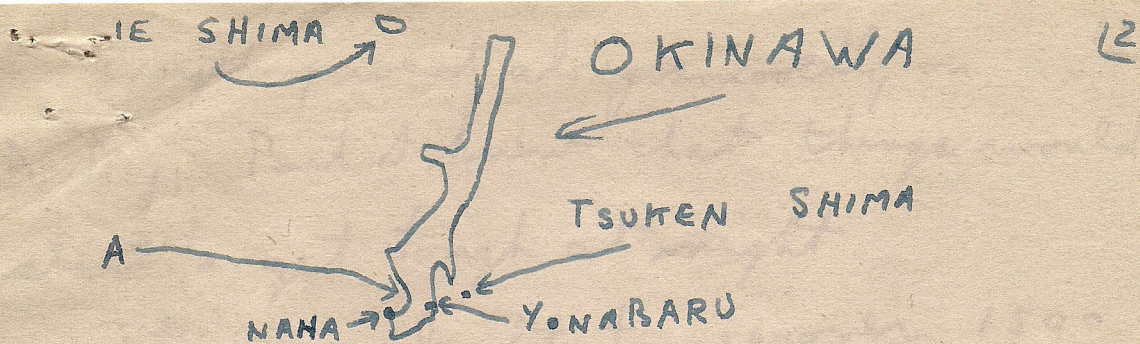 IE SHIMA
OKINAWA
TSUKEN SHIMA
A
NAHA
YONABARU